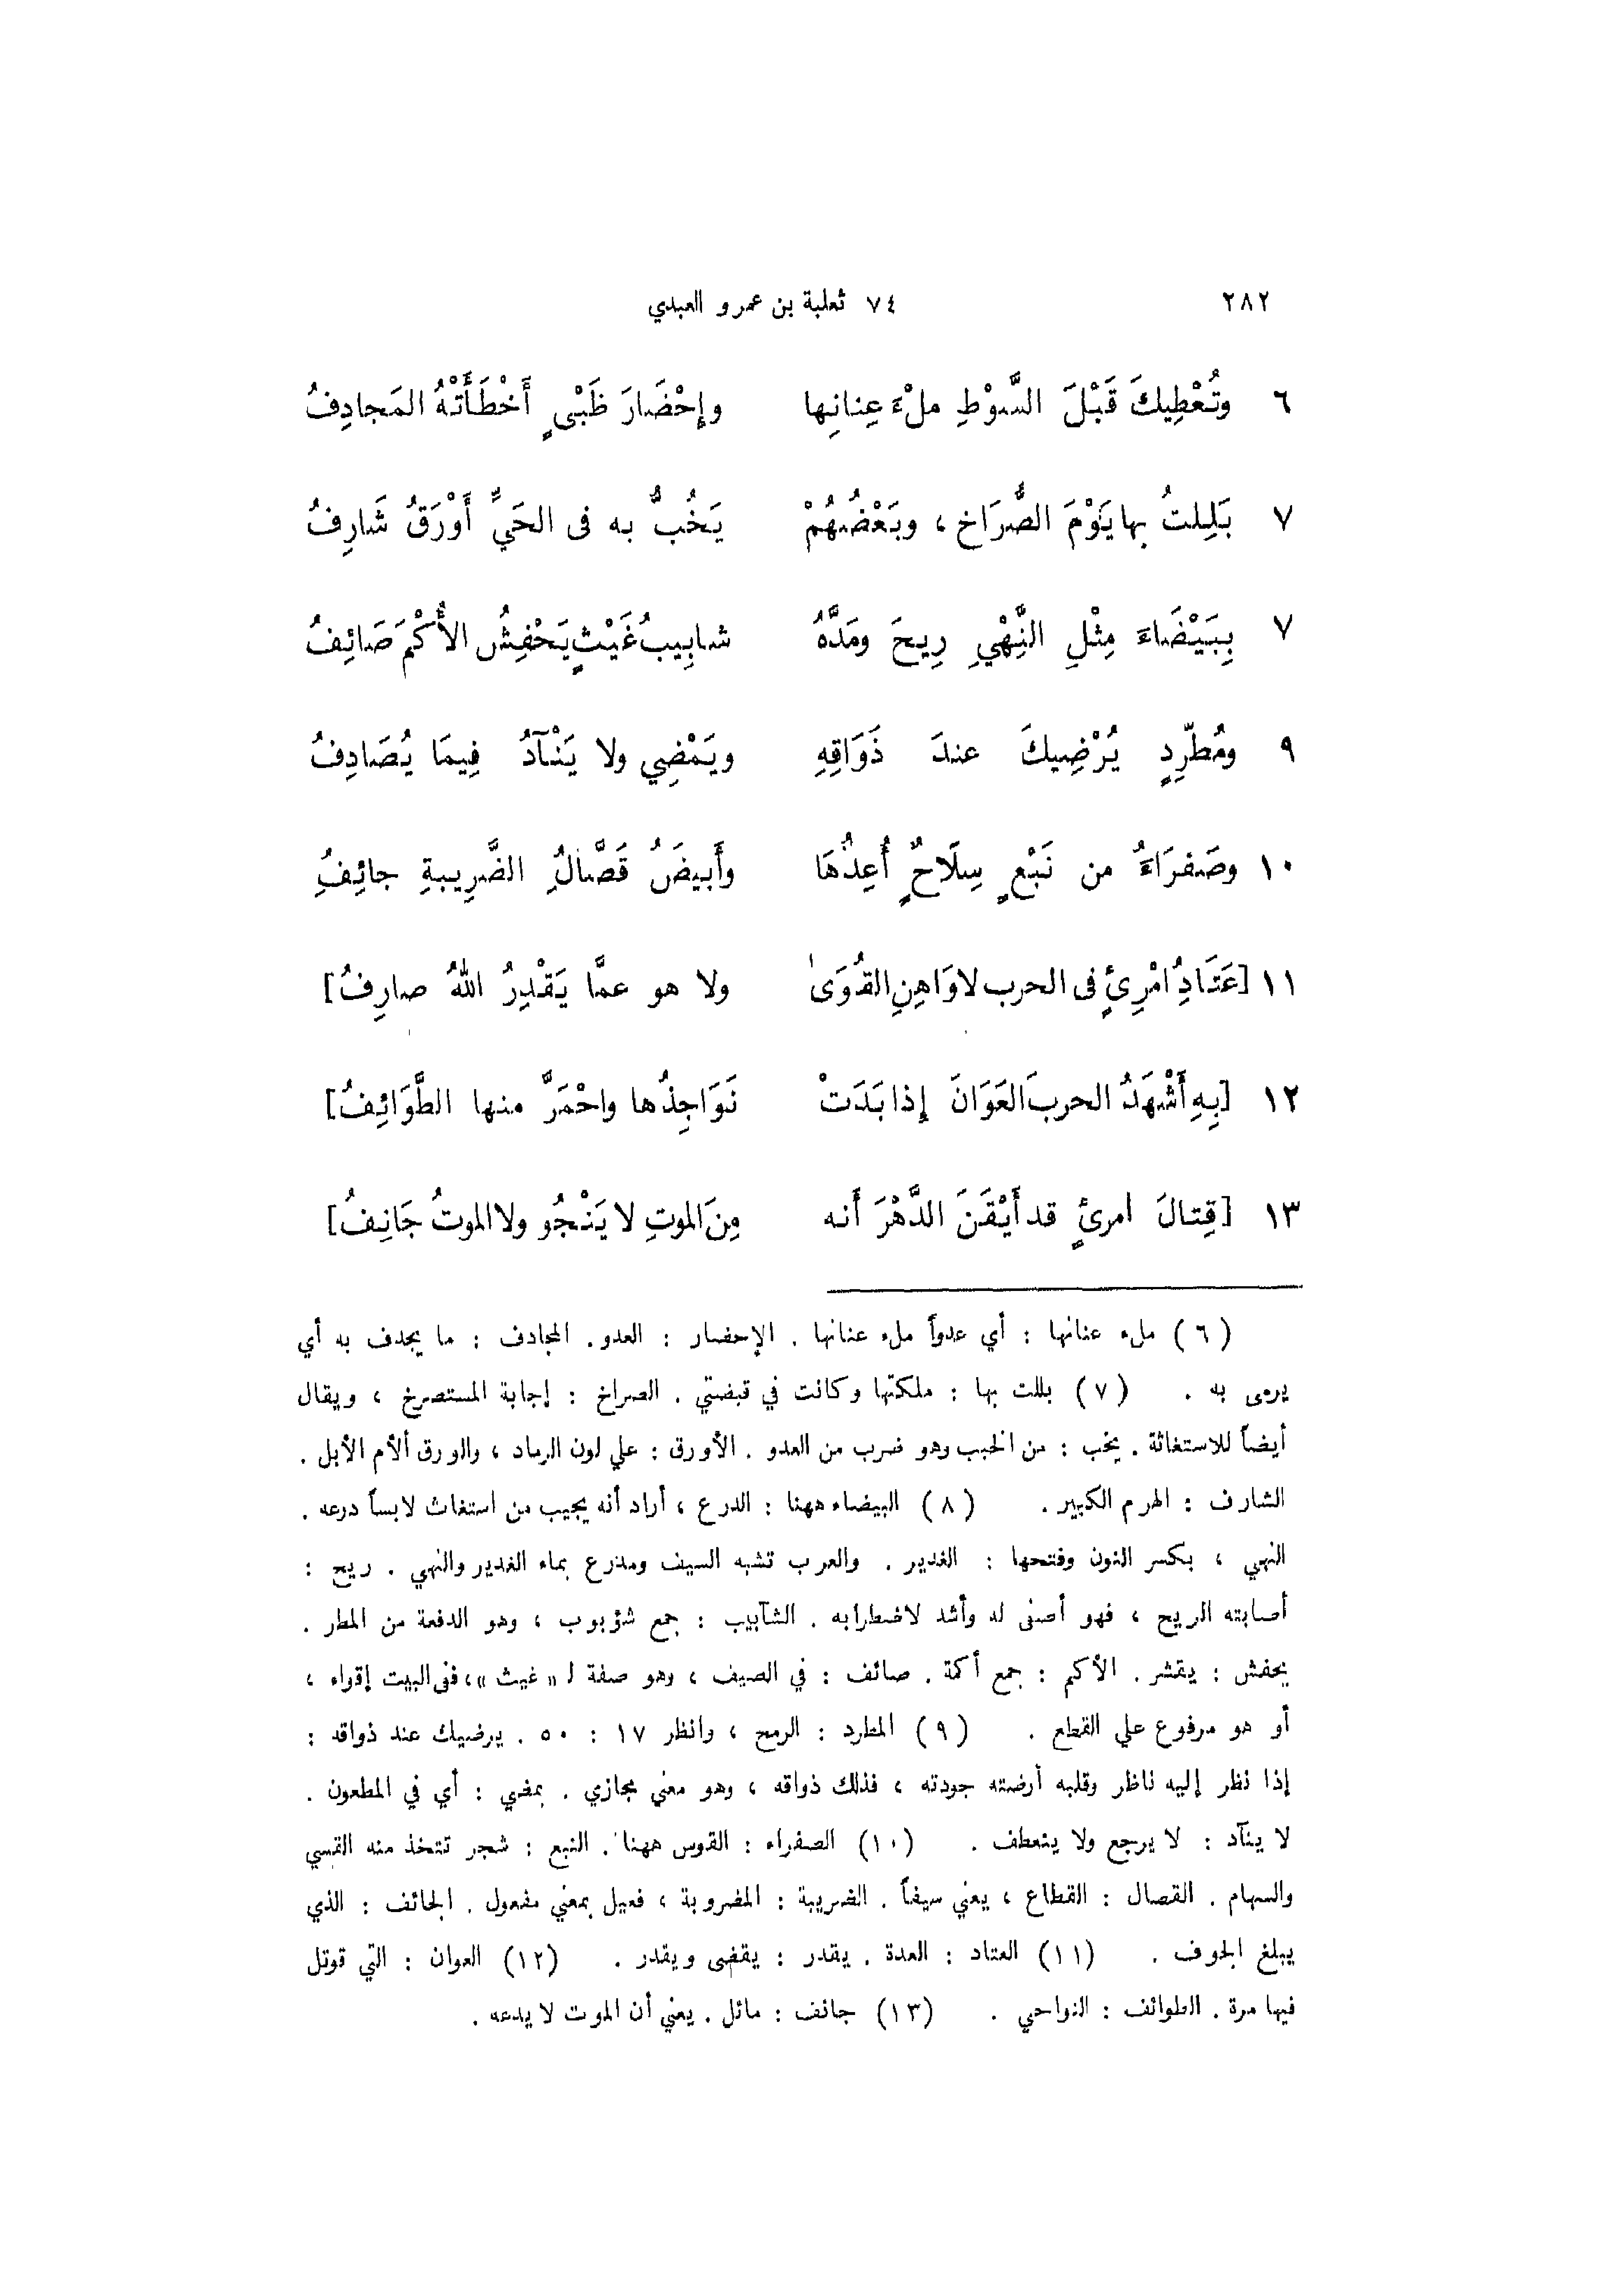 ٢٨٢ ٧٤ ثعلبة بن عمرو العبدي
٦ وتُعْطِيكَ قَبْلَ السَّوْطِ ملْءَ عِنانِها وإِحْضَارَ ظَبْىٍ أَخْطَأَتْهُ المَجادِفُ
٧ بَلِلتُ بها يَوْمَ الصُّرَاخِ ، وبَعْضُهُمْ يَخُبُّ به فى الحَيِّ أَوْرَقُ شَارِفُ
٧ بِبَيْضَاءَ مِثْلِ النِّهْيِ رِيحَ ومَدَّهُ شابِيبُ غَيْثٍ يَحْفِشُ الأُكْمَ صَائِفُ
٩ ومُطَّرِدٍ يُرْضِيكَ عندَ ذَوَاقِهِ ويَمْضِي ولا يَنْآدُ فِيمَا يُصَادِفُ
١٠ وصَفرَاءُ من نَبْعٍ سِلَاحٌ أُعِدُّهَا وأَبيضَُ قَصَّالُِ الضَّرِيبةِ جائِفُِ
١١ [عَتَادُِ امْرِئٍ فى الحرب لا وَاهِنِ القُوَىٰ ولا هو عمَّا يَقْدِرُ اللهُ صارِفُ]
١٢ [بِهِ أَشْهَدُ الحربَ العَوَانَ إِذا بَدَتْ نَوَاجِذُها واحْمَرَّ منها الطَّوَائِفُ]
١٣ [قِتالَ امرئٍ قد أَيْقَنَ الدَّهْرَ أَنه مِنَ الموتِ لا يَنْجُو ولا الموتُ جَانِفُ]
(٦) ملء عنانها : أي عدواً ملء عنانها . الإحضار : العدو . المجادف : ما يجدف به أي
يرمى به . (٧) بللت بها : ملكتها وكانت في قبضتي . الصراخ : إجابة المستصرخ ، ويقال
أيضاً للاستغاثة . يخب : من الخبب وهو ضرب من العدو . الأورق : علي لون الرماد ، والورق ألأم الأبل .
الشارف : الهرم الكبير . (٨) البيضاء ههنا : الدرع ، أراد أنه يجيب من استغاث لابساً درعه .
النهي ، بكسر النون وفتحها : الغدير . والعرب تشبه السيف ومدرع بماء الغدير والنهي . ريح :
أصابته الريح ، فهو أصفى له وأشد لاضطرابه . الشآبيب : جمع شؤبوب ، وهو الدفعة من المطر .
يحفش : يقشر . الأكم : جمع أكمة . صائف : في الصيف ، وهو صفة لـ « غيث »، ففى البيت إقواء ،
أو هو مرفوع علي القطع . (٩) المطرد : الرمح ، وانظر ١٧ : ٥٠ . يرضيك عند ذواقه :
إذا نظر إليه ناظر وقلبه أرضته جودته ، فذلك ذواقه ، وهو معني مجازي . يمضي : أي في المطعون .
لا ينآد : لا يرجع ولا ينعطف . (١٠) الصفراء : القوس ههنا . النبع : شجر تتخذ منه القسي
والسهام . القصال : القطاع ، يعني سيفاً . الضريبة : المضروبة ، فعيل بمعني مفعول . الجائف : الذي
يبلغ الجوف . (١١) العتاد : العدة . يقدر : يقضى ويقدر . (١٢) العوان : التي قوتل
فيها مرة . الطوائف : النواحي . (١٣) جانف : مائل . يعني أن الموت لا يدعه .